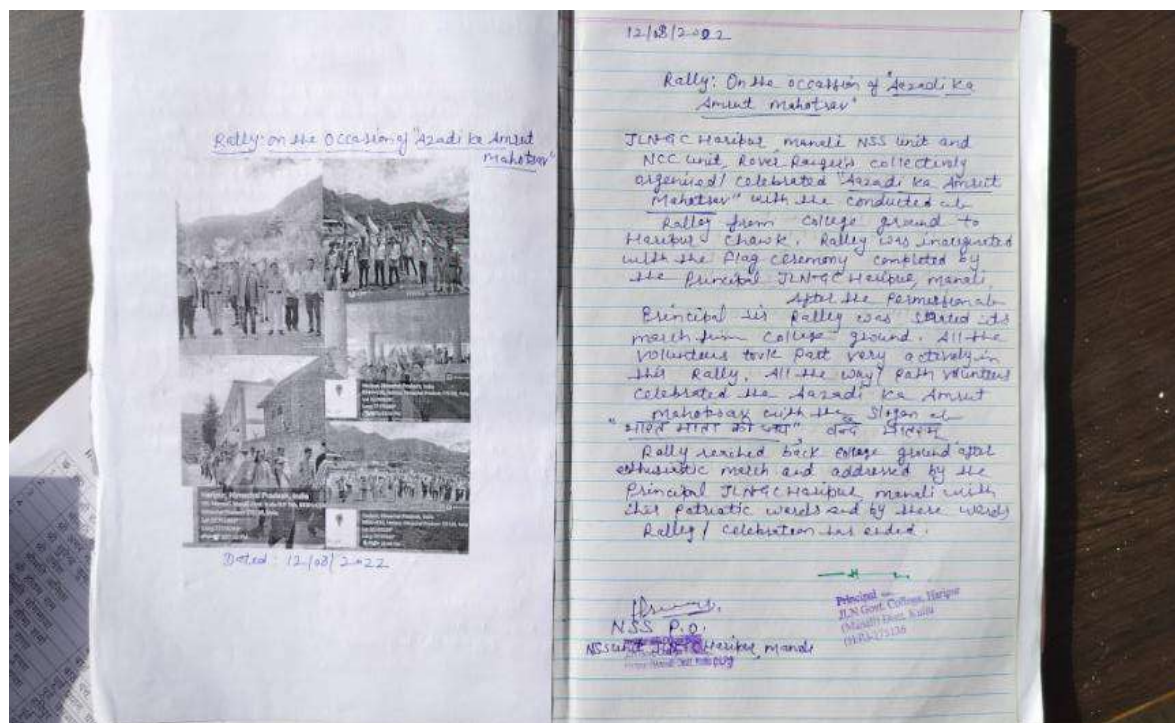 Rally: on the Occasion of "Azadi ka Amrut
Mahotsav"
Haripur, Himachal Pradesh, India
Dated: 12/08/2022
12/08/2022
Rally: On the occassion of "Aazadi Ka
Amrut Mahotsav"
JLNGC Haripur, Manali NSS unit and
NCC unit, Rover Ranger's collectively
organised/ celebrated "Aazadi Ka Amrut
Mahotsav" with the conducted ab
Rallay from College ground to
Haripur Chawk. Rallay was inaugurated
with the flag ceremony completed by
the Principal JLNGC Haripur, Manali,
After the Permission ab
Principal sir Rallay was started its
march from College ground. All the
volunteers took Part very actively in
this Rally. All the way/ Path volunteers
celebrated the Aazadi Ka Amrut
Mahotsav with the slogan of
"भारत माता की जय", वन्दे मातरम्
Rally reached back College ground after
march and addressed by the
Principal JLNGC Haripur Manali with
Patriotic words and by these words
Rallay/ celebration has ended.
NSS P.O.
NSS unit JLNGC Haripur, Manali
Principal
JLN Govt. College, Haripur
(Manali) Distt. Kullu
(H.P.)-175136